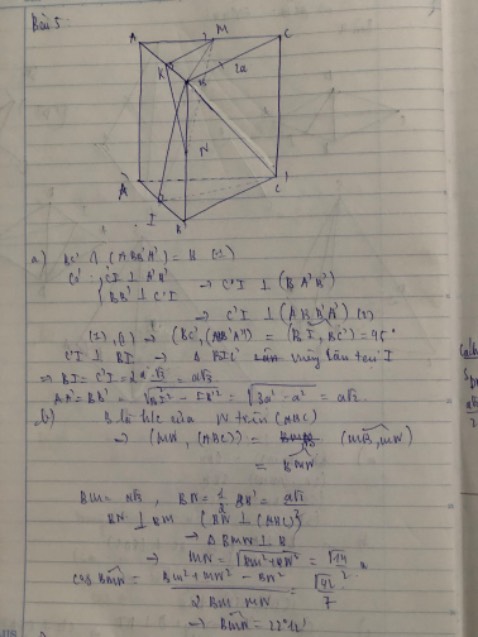 Bài 5:
A M C
K B 2a
N
A' C'
I B'
a) BC' ∩ (ABB'A') = B (1)
C'I ⊥ A'B'
BB' ⊥ C'I → C'I ⊥ (BA'B')
→ C'I ⊥ (ABB'A') (2)
(1), (2) → (BC', (ABB'A')) = (BI, BC') = 45°
C'I ⊥ BI → Δ BIC' cân vuông cân tại I
⇒ BI = C'I = 2a √3/2 = a√3
AA' = BB' = √(BI² - IB'²) = √(3a² - a²) = a√2
b) B là h/c của N trên (ABC)
→ (MN, (ABC)) = (MB, MN)
= BMN
BM = a√3, BN = 1/2 BB' = a√2/2
BN ⊥ BM (BN ⊥ (ABC))
→ Δ BMN ⊥ B
→ MN = √(BM² + BN²) = √14/2 a
cos BMN = (BM² + MN² - BN²)/(2 BM MN) = √42/7
→ BMN = 22°12'